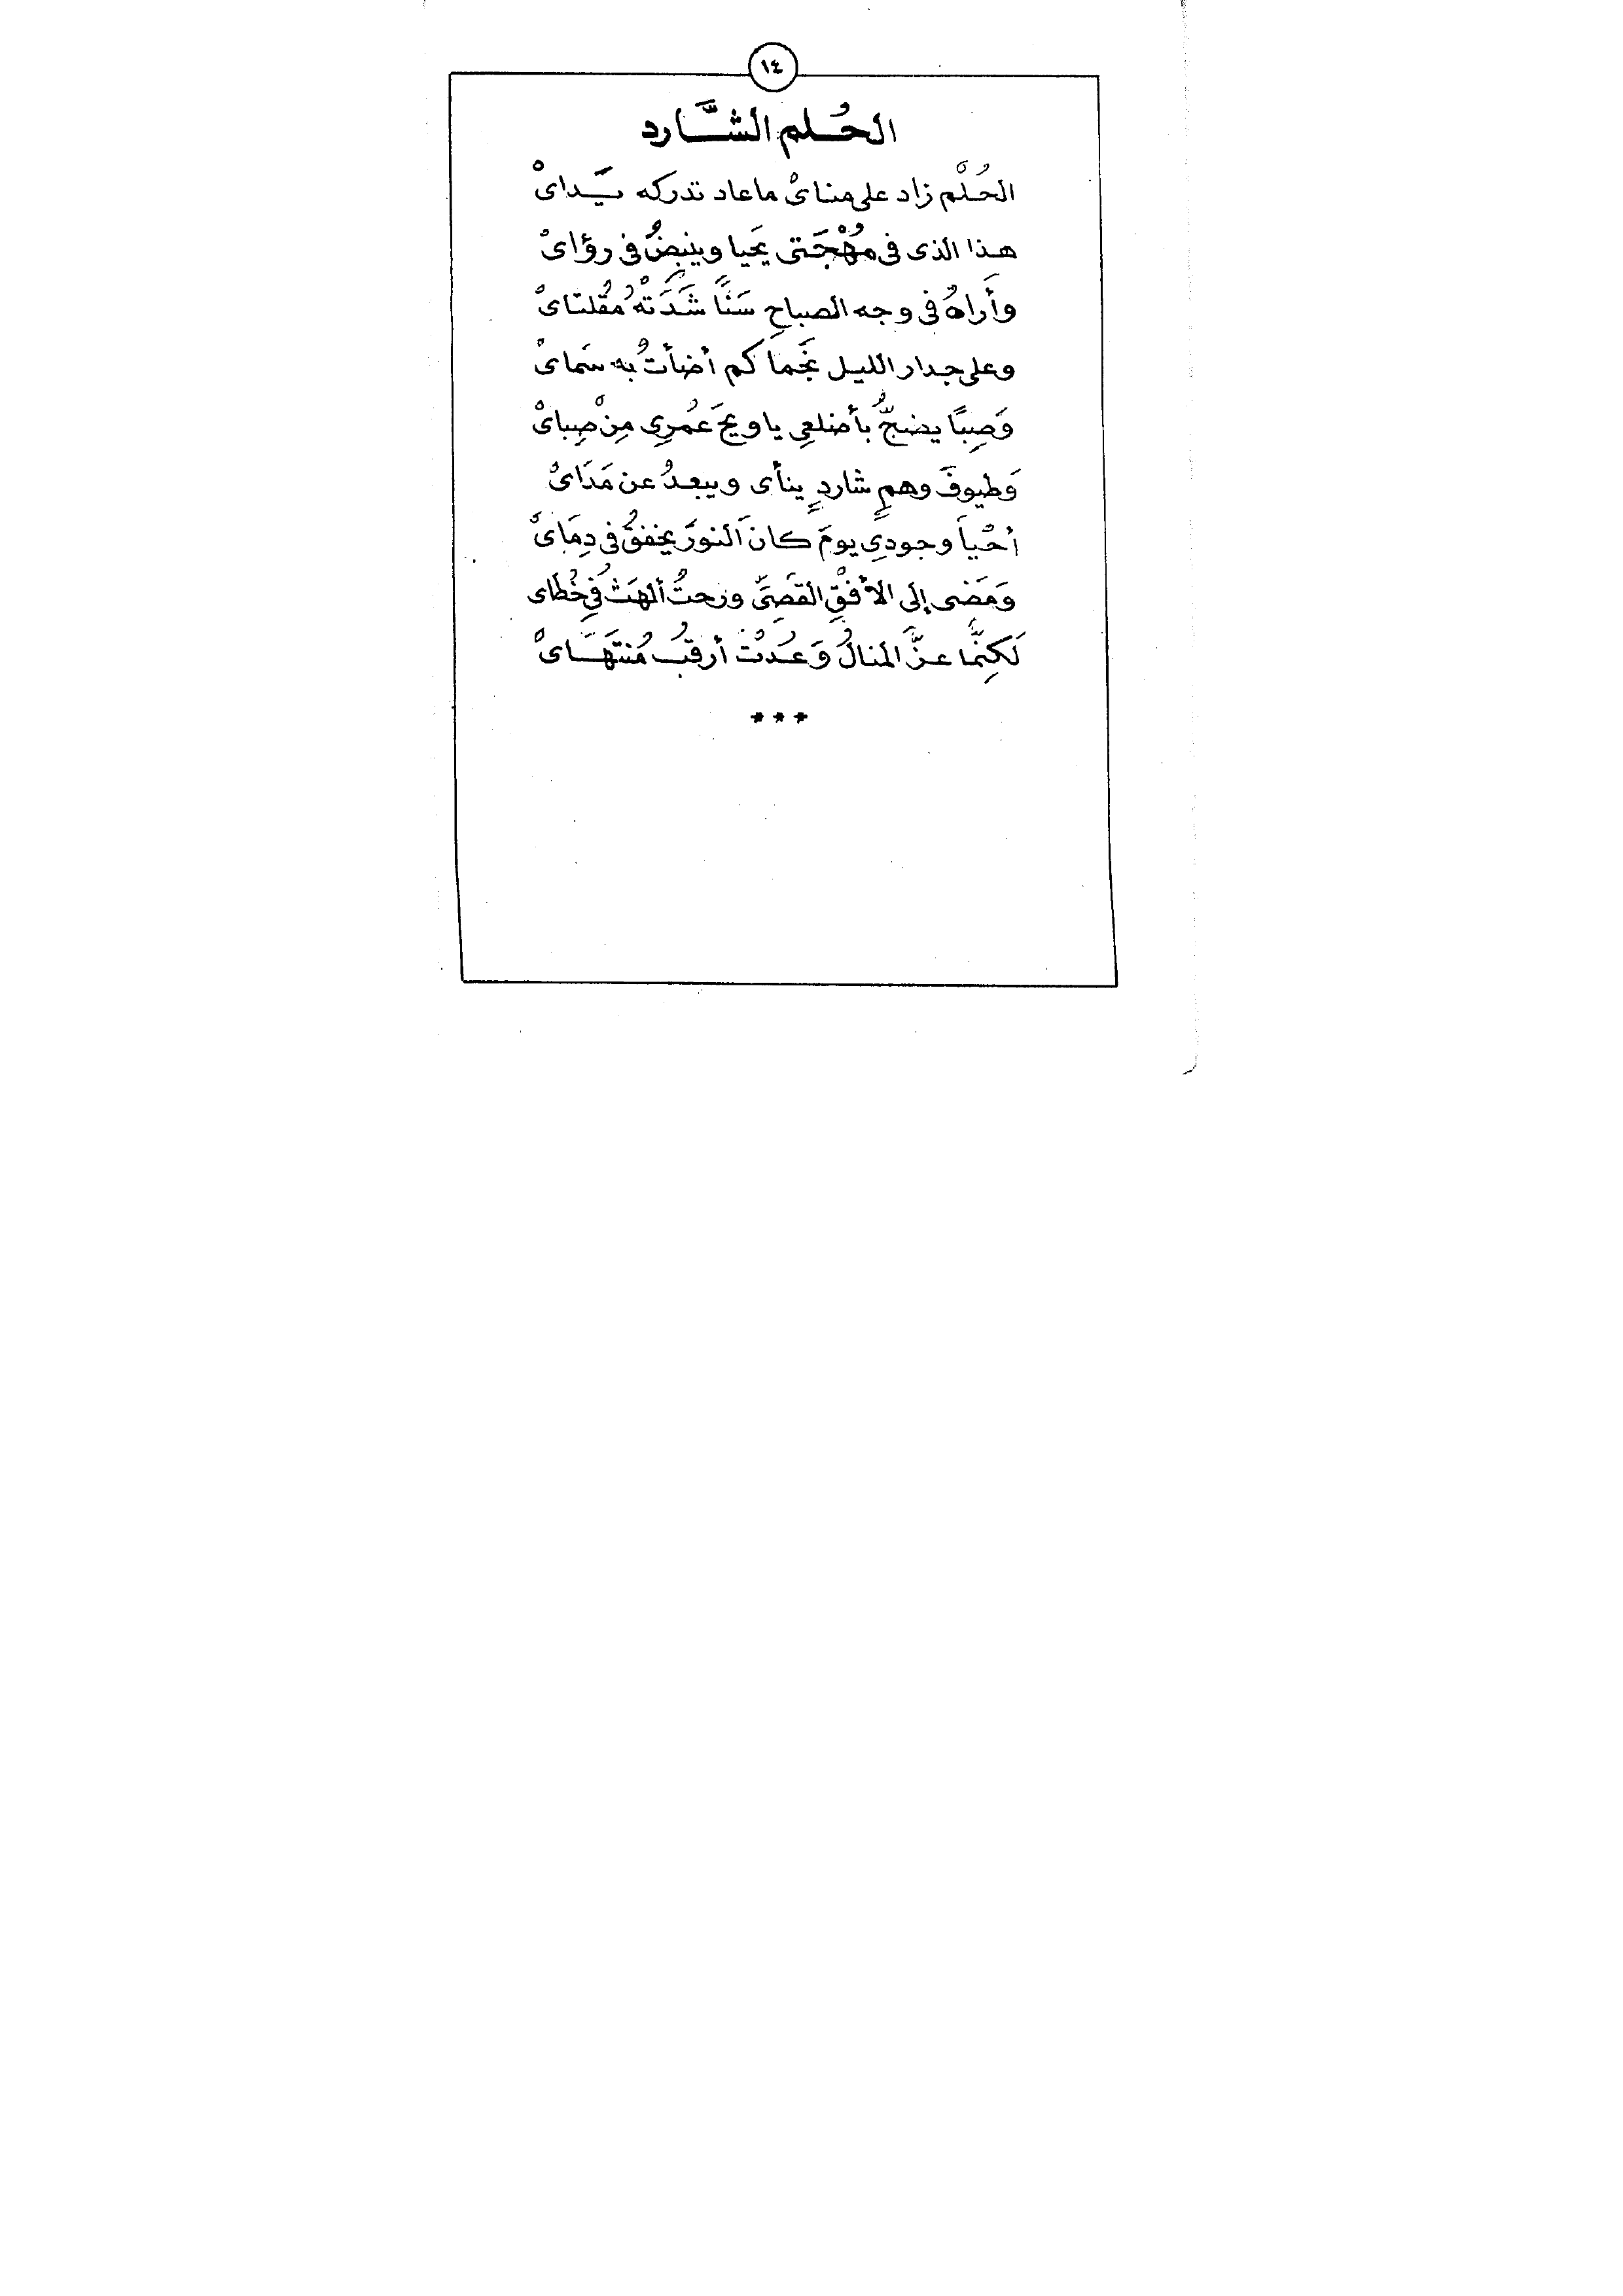 ١٤
الحُلم الشَّارد
الحُلْم زاد على منايْ ما عاد تدركه يَداىْ
هذا الذى فى مُهْجَتى يَحيا وينبِضُ فى رؤاىْ
وأَراهُ فى وجه الصباحِ سَنًا شَدَتْهُ مُقلتاىْ
وعلى جدار الليل نجَما كم أضأتُ به سَماىْ
وَصِبًا يضجُّ بأضلعِى يا ويحَ عمُرِى مِنْ صِباىْ
وَطيوفَ وهمٍ شاردٍ ينأى ويبعدُ عن مَدَاىْ
أحْيا وجودِى يومَ كانَ النورُ يخفقُ فى دِمَاىْ
وَمَضى إلى الأفْقِ القَصِىِّ ورحتُ ألهَثُ فِى خُطَاى
لَكِنَّما عزَّ المنالُ وَعُدتْ أرقبُ مُنتَهَاىْ
***